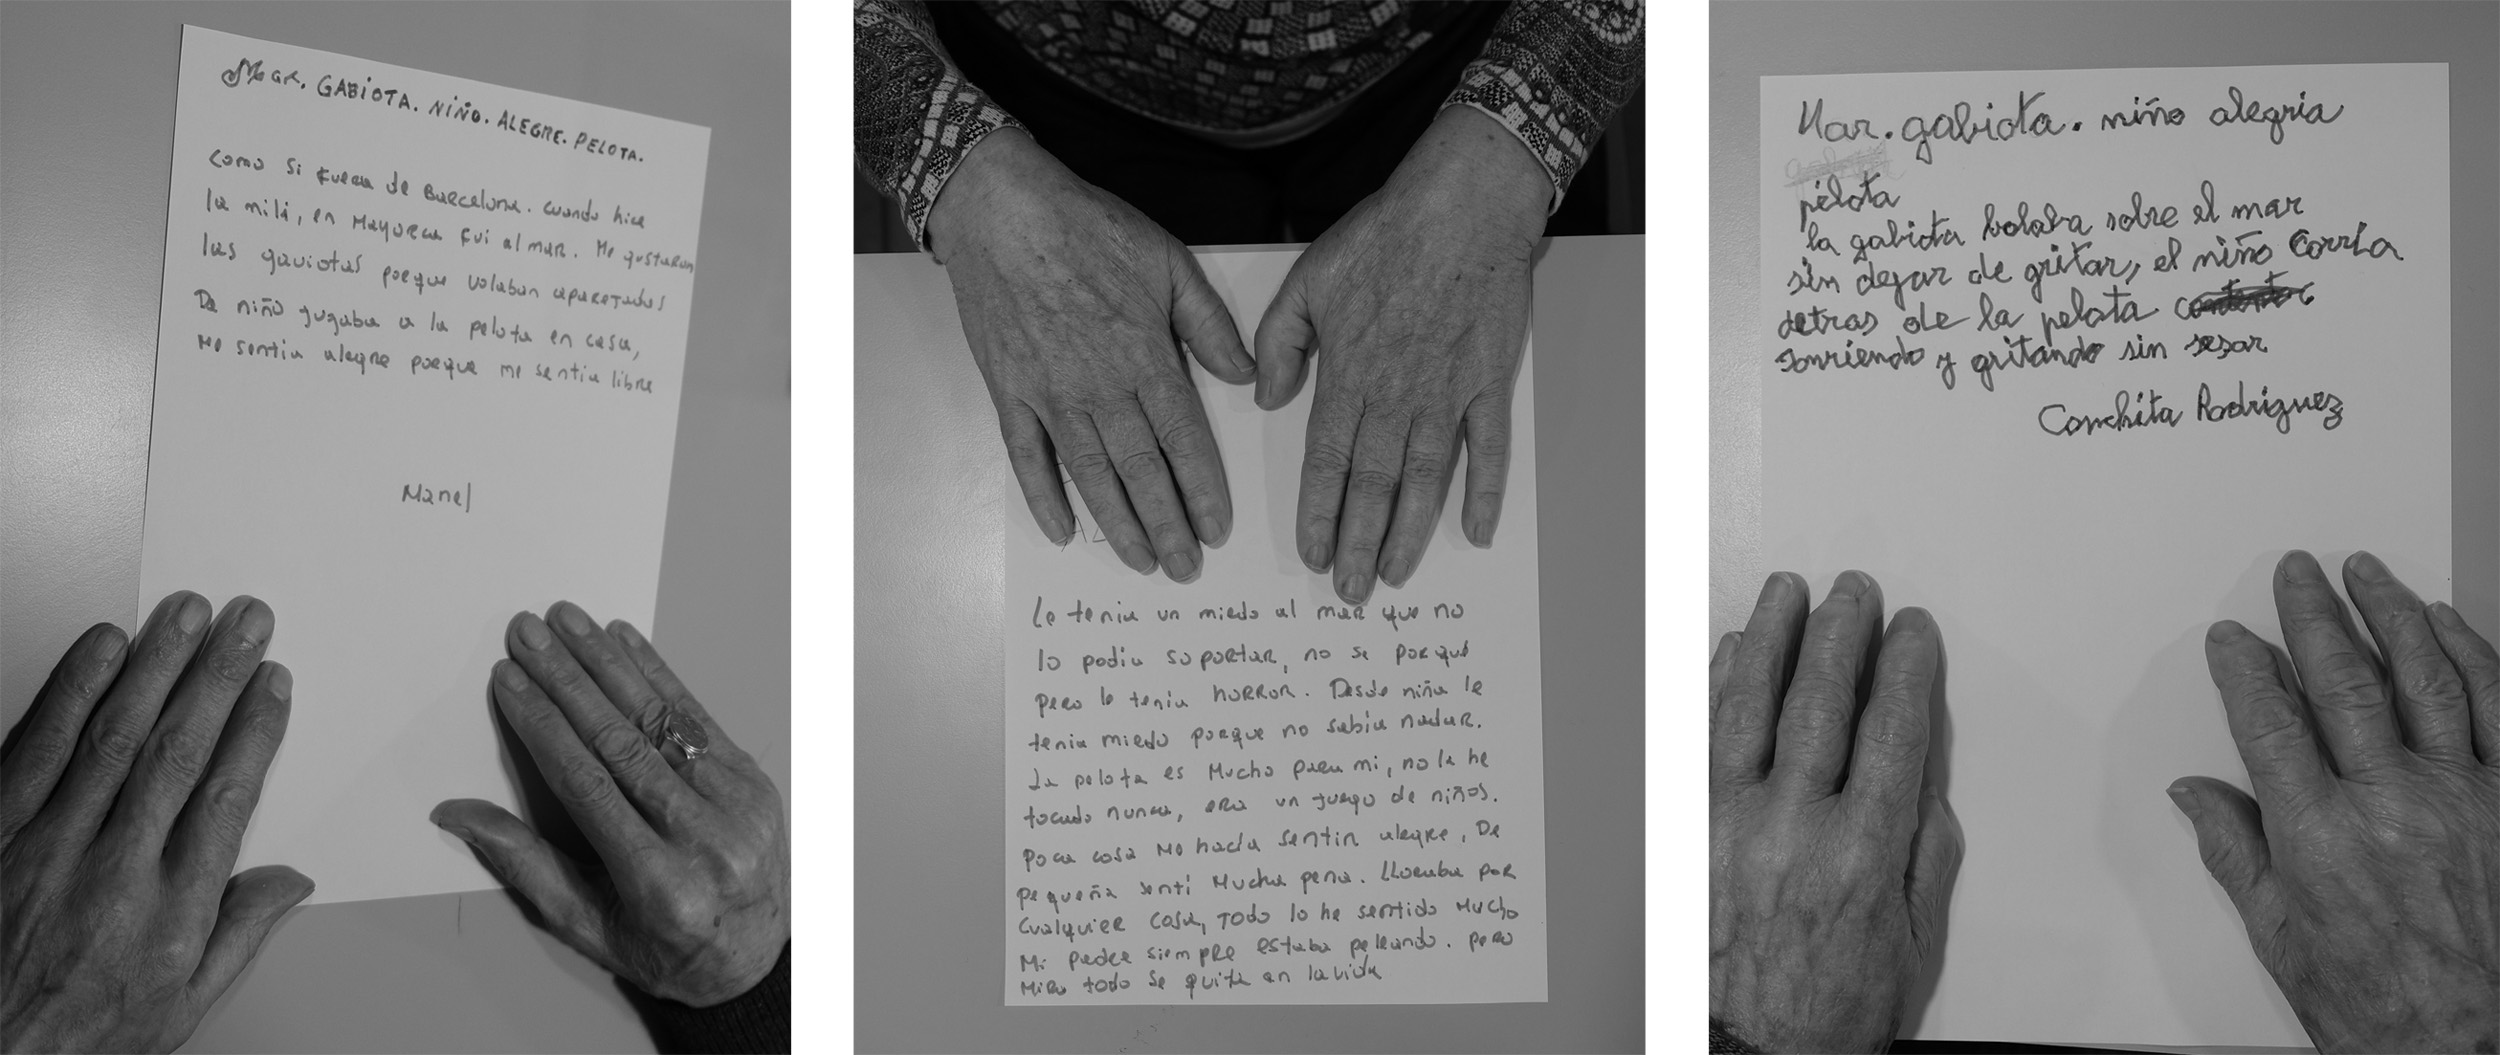 Mar. GABIOTA. NIÑO. ALEGRE. PELOTA.
como si fuera de Barcelona. cuando hice
la mili, en Mayorca fui al mar. Me gustaron
las gaviotas porque volaban aparejadas
De niño jugaba a la pelota en casa,
Me sentia alegre porque me sentia libre
Manel
Le tenia un miedo al mar que no
lo podia soportar, no se porqué
pero le tenia HORROR. Desde niña le
tenia miedo porque no sabia nadar.
La pelota es Mucho para mi, no la he
tocado nunca, era un juego de niños.
Poca cosa me hacía sentir alegre, De
pequeña senti Mucha pena. Lloraba por
cualquier cosa, TODO lo he sentido Mucho
Mi padre siempre estaba peleando. pero
Mira todo se quita en la vida
Mar. gabiota. niño alegria
pelota
la gabiota bolaba sobre el mar
sin dejar de gritar, el niño corria
detras de la pelota
sonriendo y gritando sin sesar
Conchita Rodriguez